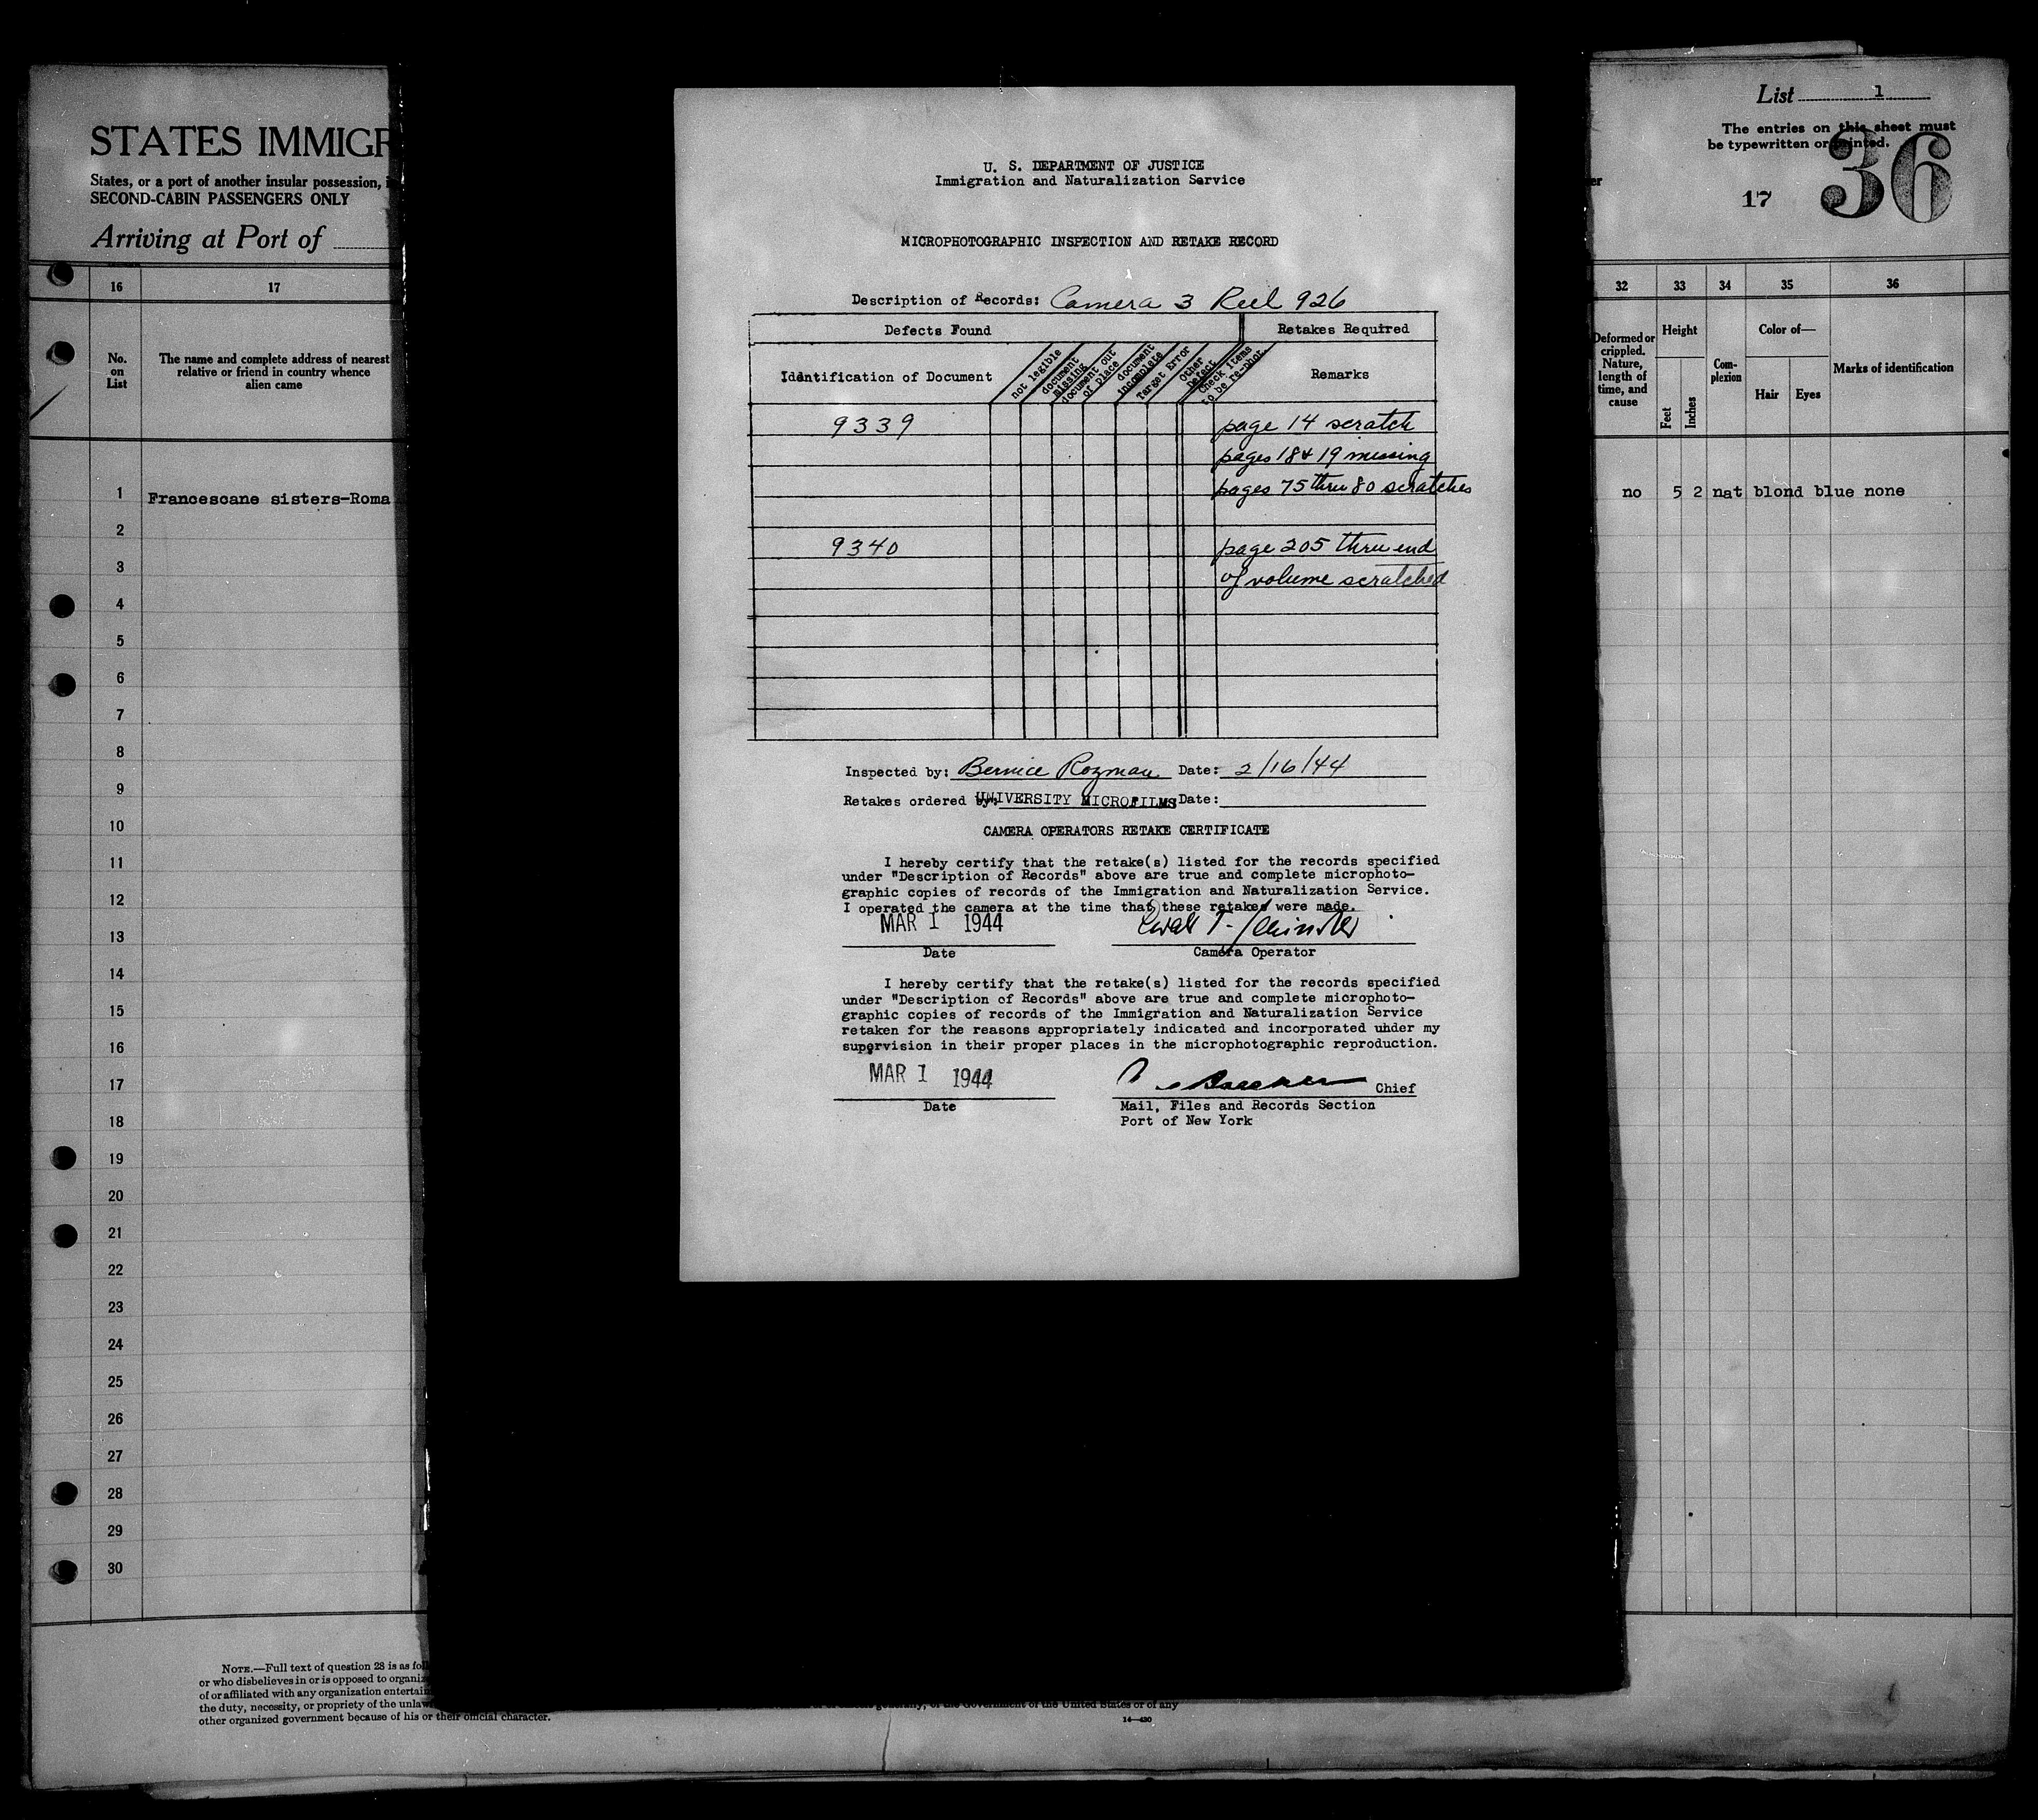 STATES IMMIGR
States, or a port of another insular possession, i
SECOND-CABIN PASSENGERS ONLY
Arriving at Port of
16 17
No. on List
The name and complete address of nearest
relative or friend in country whence
alien came
1 Francescane sisters-Roma
2
3
4
5
6
7
8
9
10
11
12
13
14
15
16
17
18
19
20
21
22
23
24
25
26
27
28
29
30
NOTE.—Full text of question 28 is as fol
or who disbelieves in or is opposed to organiz
of or affiliated with any organization entertain
the duty, necessity, or propriety of the unlaw
other organized government because of his or their official character.
the Government of the United States or of any
14—430
U. S. DEPARTMENT OF JUSTICE
Immigration and Naturalization Service
MICROPHOTOGRAPHIC INSPECTION AND RETAKE RECORD
Description of Records: Camera 3 Reel 926
Defects Found Retakes Required
Identification of Document
not legible
document missing
document out of place
document incomplete
Target Error
Other Defect
Check items to be re-phot.
Remarks
9339 page 14 scratch
pages 18 & 19 missing
pages 75 thru 80 scratches
9340 page 205 thru end
of volume scratched
Inspected by: Bernice Rozman Date: 2/16/44
Retakes ordered by: UNIVERSITY MICROFILMS Date:
CAMERA OPERATORS RETAKE CERTIFICATE
I hereby certify that the retake(s) listed for the records specified
under "Description of Records" above are true and complete microphoto-
graphic copies of records of the Immigration and Naturalization Service.
I operated the camera at the time that these retakes were made.
MAR 1 1944
Date Camera Operator
I hereby certify that the retake(s) listed for the records specified
under "Description of Records" above are true and complete microphoto-
graphic copies of records of the Immigration and Naturalization Service
retaken for the reasons appropriately indicated and incorporated under my
supervision in their proper places in the microphotographic reproduction.
MAR 1 1944
Chief
Date Mail, Files and Records Section
Port of New York
List 1
The entries on this sheet must
be typewritten or printed.
er
17 36
32 33 34 35 36
Deformed or
crippled.
Nature,
length of
time, and
cause
Height
Feet
Inches
Com-
plexion
Color of—
Hair Eyes
Marks of identification
no 5 2 nat blond blue none